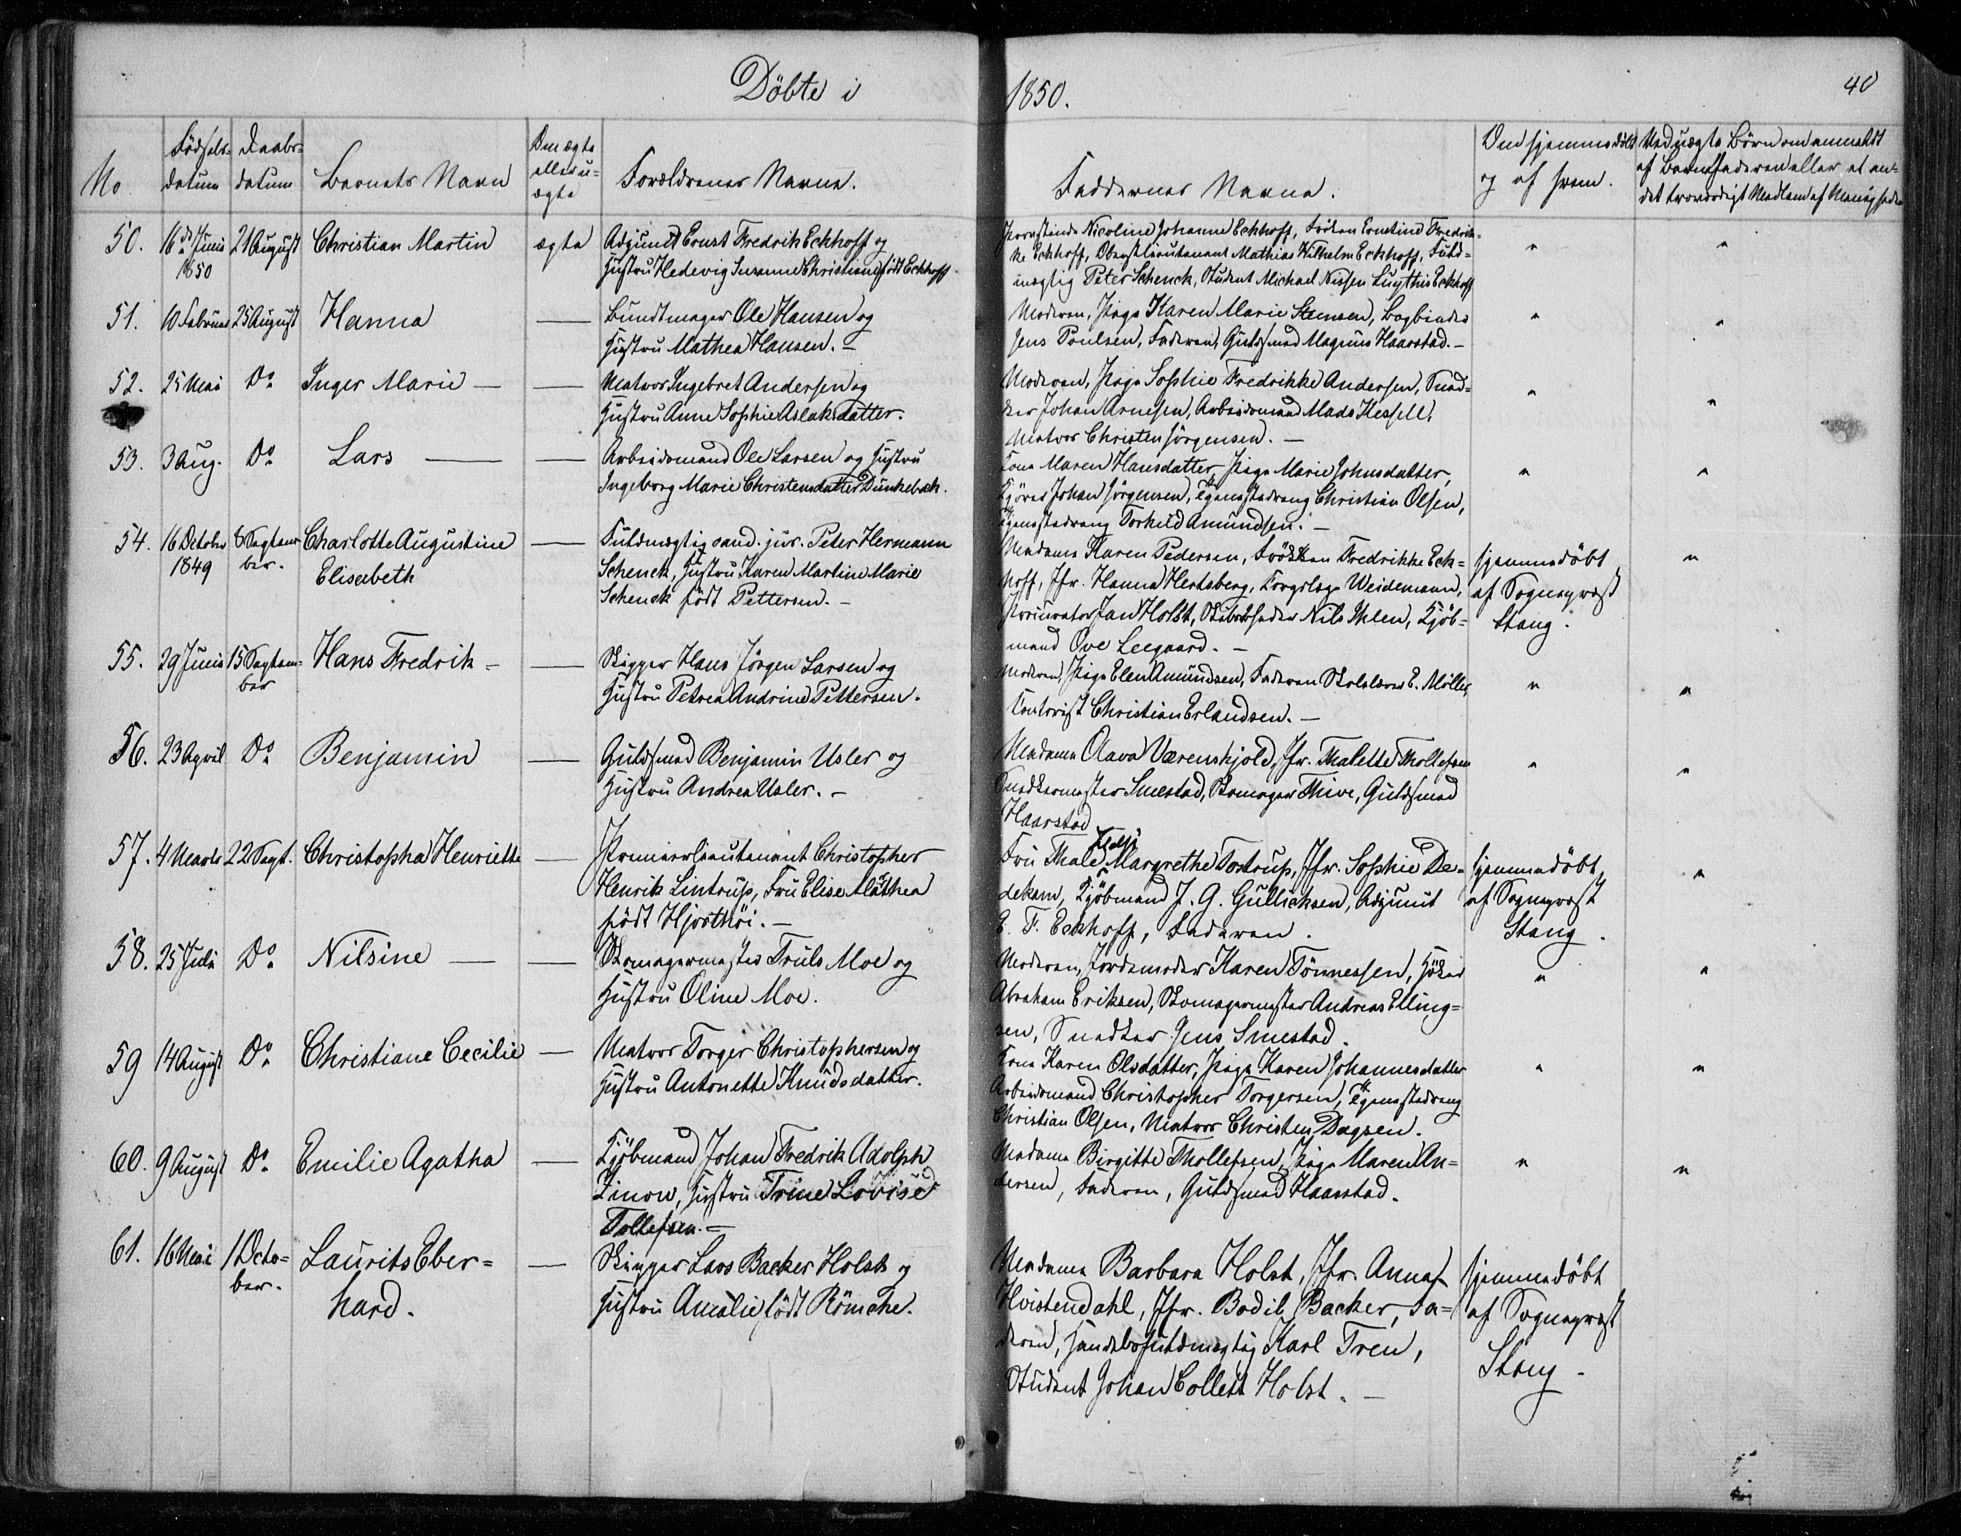 Döbte i 1850.
40
No
Födsels-
datum
Daabs-
datum
Barnets Navn
Om ægte
eller u-
ægte
Forældrenes Navne.
Faddernes Navne.
Om hjemmedöbt
og af hvem.
Ved uægte Börn om anmeldt
af Barnefaderen eller et an-
det troværdigt Medlem af Menigheden
50. 16de Junii 21 August Christian Martin ægte Adjunct Ernst Fredrik Eckhoff og
1850 Hustru Hedevig Susanne Christiane född Eckhoff.
Nicoline Johanne Eckhoff, Fröken Ernstine Fredrik-
ke Eckhoff, Oberstlieutenant Mathias Wilhelm Eckhoff, Fuld-
mægtig Peter Schenck, Student Michael Nissen Eckhoff
51. 10 Februar 25 August Hanna — Bundtmager Ole Hansen og
Hustru Mathea Hansen. —
Moderen, Pige Karen Marie Bogbinder
Jens Poulsen, Faderen, Guldsmed Magnus Haarstad. —
52. 25 Mai Do Inger Marie — — Matros Ingebret Andersen og
Hustru Anne Sophie Aslaksdatter.
Moderen, Pige Sophie Fredrikke Andersen, Sned-
ker Johan Arnesen, Arbeidsmand Mads Kessell,
Matros Christen Jörgensen. —
53. 3 Aug. Do Lars — — Arbeidsmand Ole Larsen og Hustru
Ingeborg Marie Christensdatter Dunkebek.
Kone Maren Hansdatter, Pige Marie Johnsdatter,
Johan Jörgensen, Tjenestedreng Christian Olsen,
Tjenestedreng Torkild Amundsen. —
54. 16 October 8 Septem- Charlotte Augustine — Fuldmægtig cand. jur. Peter Hermann
1849 ber. Elisabeth Schenck, Hustru Karen Martine Marie
Schenck född Pettersen. —
Madame Karen Pedersen, Fröken Fredrikke Eck-
hoff, Jfr. Hanna Hertzberg, Weidemann,
Procurator Jan Holst, Skibsreder Nils Ihlen, Kjöb-
mand Ove Leegaard. —
hjemmedöbt
af Sognepræst
Stang.
55. 29 Junii 15 Septem- Hans Fredrik — — Skipper Hans Jörgen Larsen og
ber Hustru Petrea Andrine Pettersen.
Moderen, Pige Elen Amundsen, Faderen Skolelærer E. Möller,
Contorist Christian Erlandsen. —
56. 23 April Do Benjamin — Guldsmed Benjamin Usler og
Hustru Andrea Usler. —
Madame Olava Værenskjold, Jfr. Thalette Thollefsen
Snedkermester Smestad, Skomager Thive, Guldsmed
Haarstad
57. 4 Marts 22 Sept. Christopha Henriette — Premierlieutenant Christopher
Henrik Lintrup, Fru Elise Mathea
född Hjorthöi. —
Fru Thale Margrethe Tostrup, Jfr. Sophie De-
dekam, Kjöbmand J. G. Gullichsen, Adjunct
E. F. Eckhoff, Faderen.
hjemmedöbt
af Sognepræst
Stang.
58. 25 Juli Do Nilsine — — Skomagermester Truls Moe og
Hustru Oline Moe.
Moderen, Jordemoder Karen Tönnessen, Höker
Abraham Eriksen, Skomagermester Andreas Elling-
sen, Snedker Jens Smestad.
59 14 August Do Christiane Cecilie — Matros Torger Christophersen og
Hustru Antonette Knudsdatter.
Kone Karen Olsdatter, Pige Karen Johannesdatter
Arbeidsmand Christopher Torgersen, Tjenestedreng
Christian Olsen, Matros Christen Dagsen.
60. 9 August Do Emilie Agatha — Kjöbmand Johan Fredrik Adolph
Zinow, Hustru Trine Lovise
Tollefsen. —
Madame Birgitte Thollefsen, Pige Maren An-
dersen, Faderen, Guldsmed Haarstad.
61. 16 Mai 1 Octo- Laurits Eber- — Skipper Lars Backer Holst og
ber. hard. Hustru Amalie född Römcke.
Madame Barbara Holst, Jfr. Anna
Hvistendahl, Jfr. Bodil Backer, Fa-
deren, Handelsfuldmægtig Karl Tren,
Student Johan Collett Holst. —
hjemmedöbt
af Sognepræst
Stang.